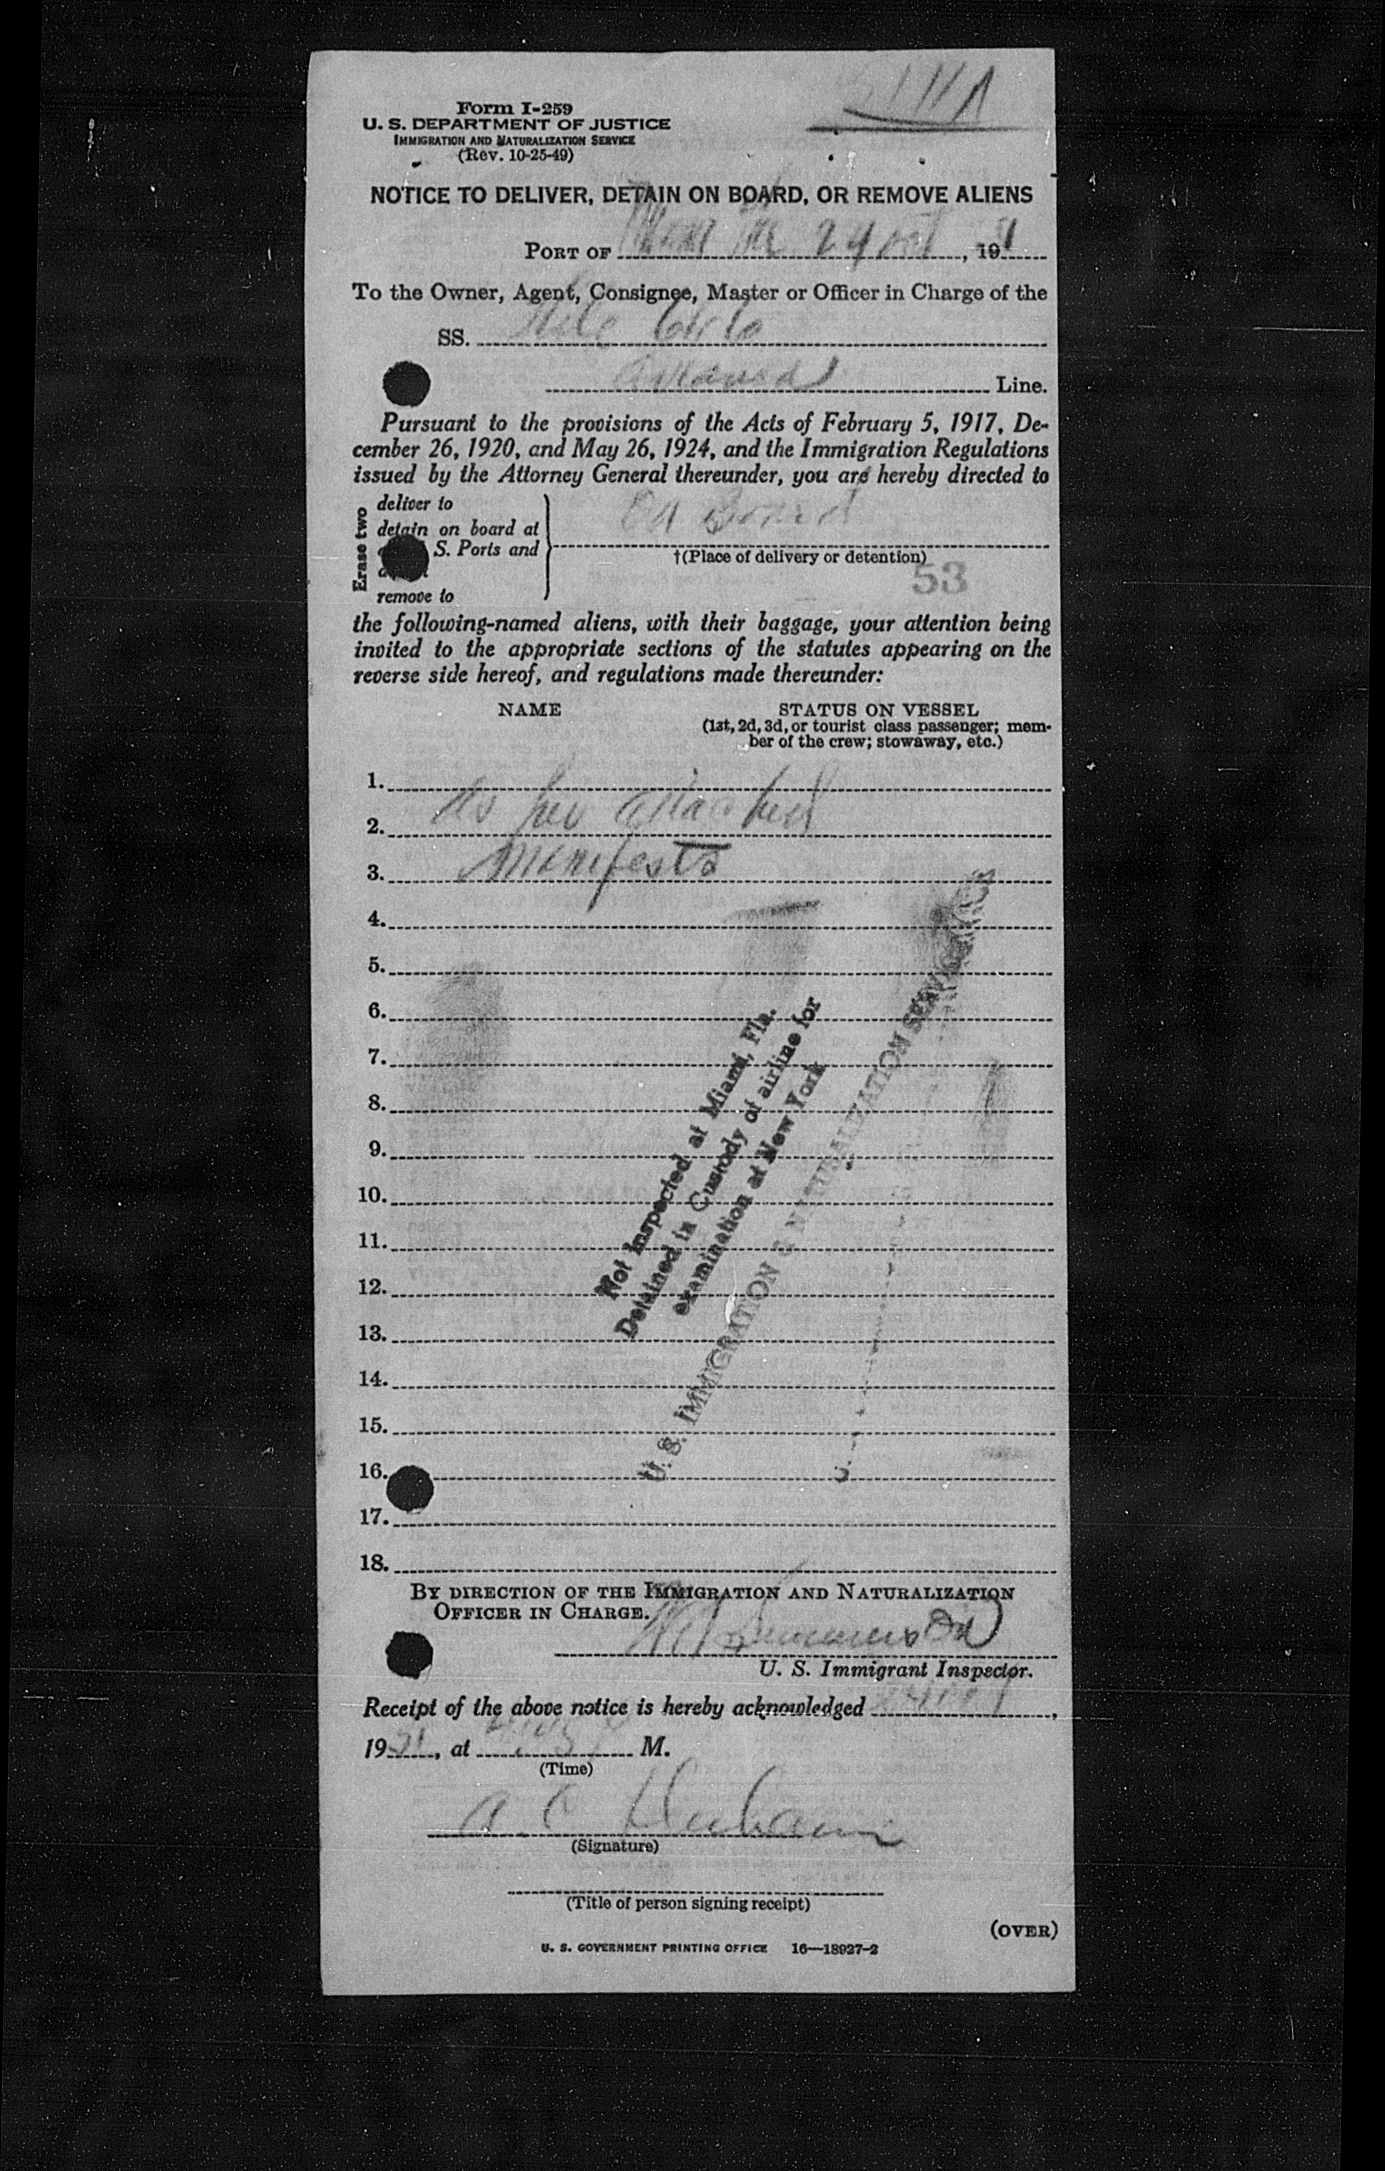 Form I-259
U. S. DEPARTMENT OF JUSTICE
IMMIGRATION AND NATURALIZATION SERVICE
(Rev. 10-25-49)
NOTICE TO DELIVER, DETAIN ON BOARD, OR REMOVE ALIENS
PORT OF 24 Oct, 19
To the Owner, Agent, Consignee, Master or Officer in Charge of the
SS.
Line.
Pursuant to the provisions of the Acts of February 5, 1917, De-
cember 26, 1920, and May 26, 1924, and the Immigration Regulations
issued by the Attorney General thereunder, you are hereby directed to
Erase two
deliver to
detain on board at
S. Ports and
remove to
On Board
†(Place of delivery or detention)
53
the following-named aliens, with their baggage, your attention being
invited to the appropriate sections of the statutes appearing on the
reverse side hereof, and regulations made thereunder:
NAME
STATUS ON VESSEL
(1st, 2d, 3d, or tourist class passenger; mem-
ber of the crew; stowaway, etc.)
1.
As per attached
2.
Manifests
3.
4.
5.
6.
7.
8.
9.
10.
11.
12.
13.
14.
15.
16.
17.
18.
Not Inspected at Miami, Fla.
Detained in Custody of airline for
examination at New York
U. S. IMMIGRATION & NATURALIZATION SERVICE
BY DIRECTION OF THE IMMIGRATION AND NATURALIZATION
OFFICER IN CHARGE.
U. S. Immigrant Inspector.
Receipt of the above notice is hereby acknowledged ,
1951, at M.
(Time)
A. C.
(Signature)
(Title of person signing receipt)
(OVER)
U. S. GOVERNMENT PRINTING OFFICE 16—18927-2